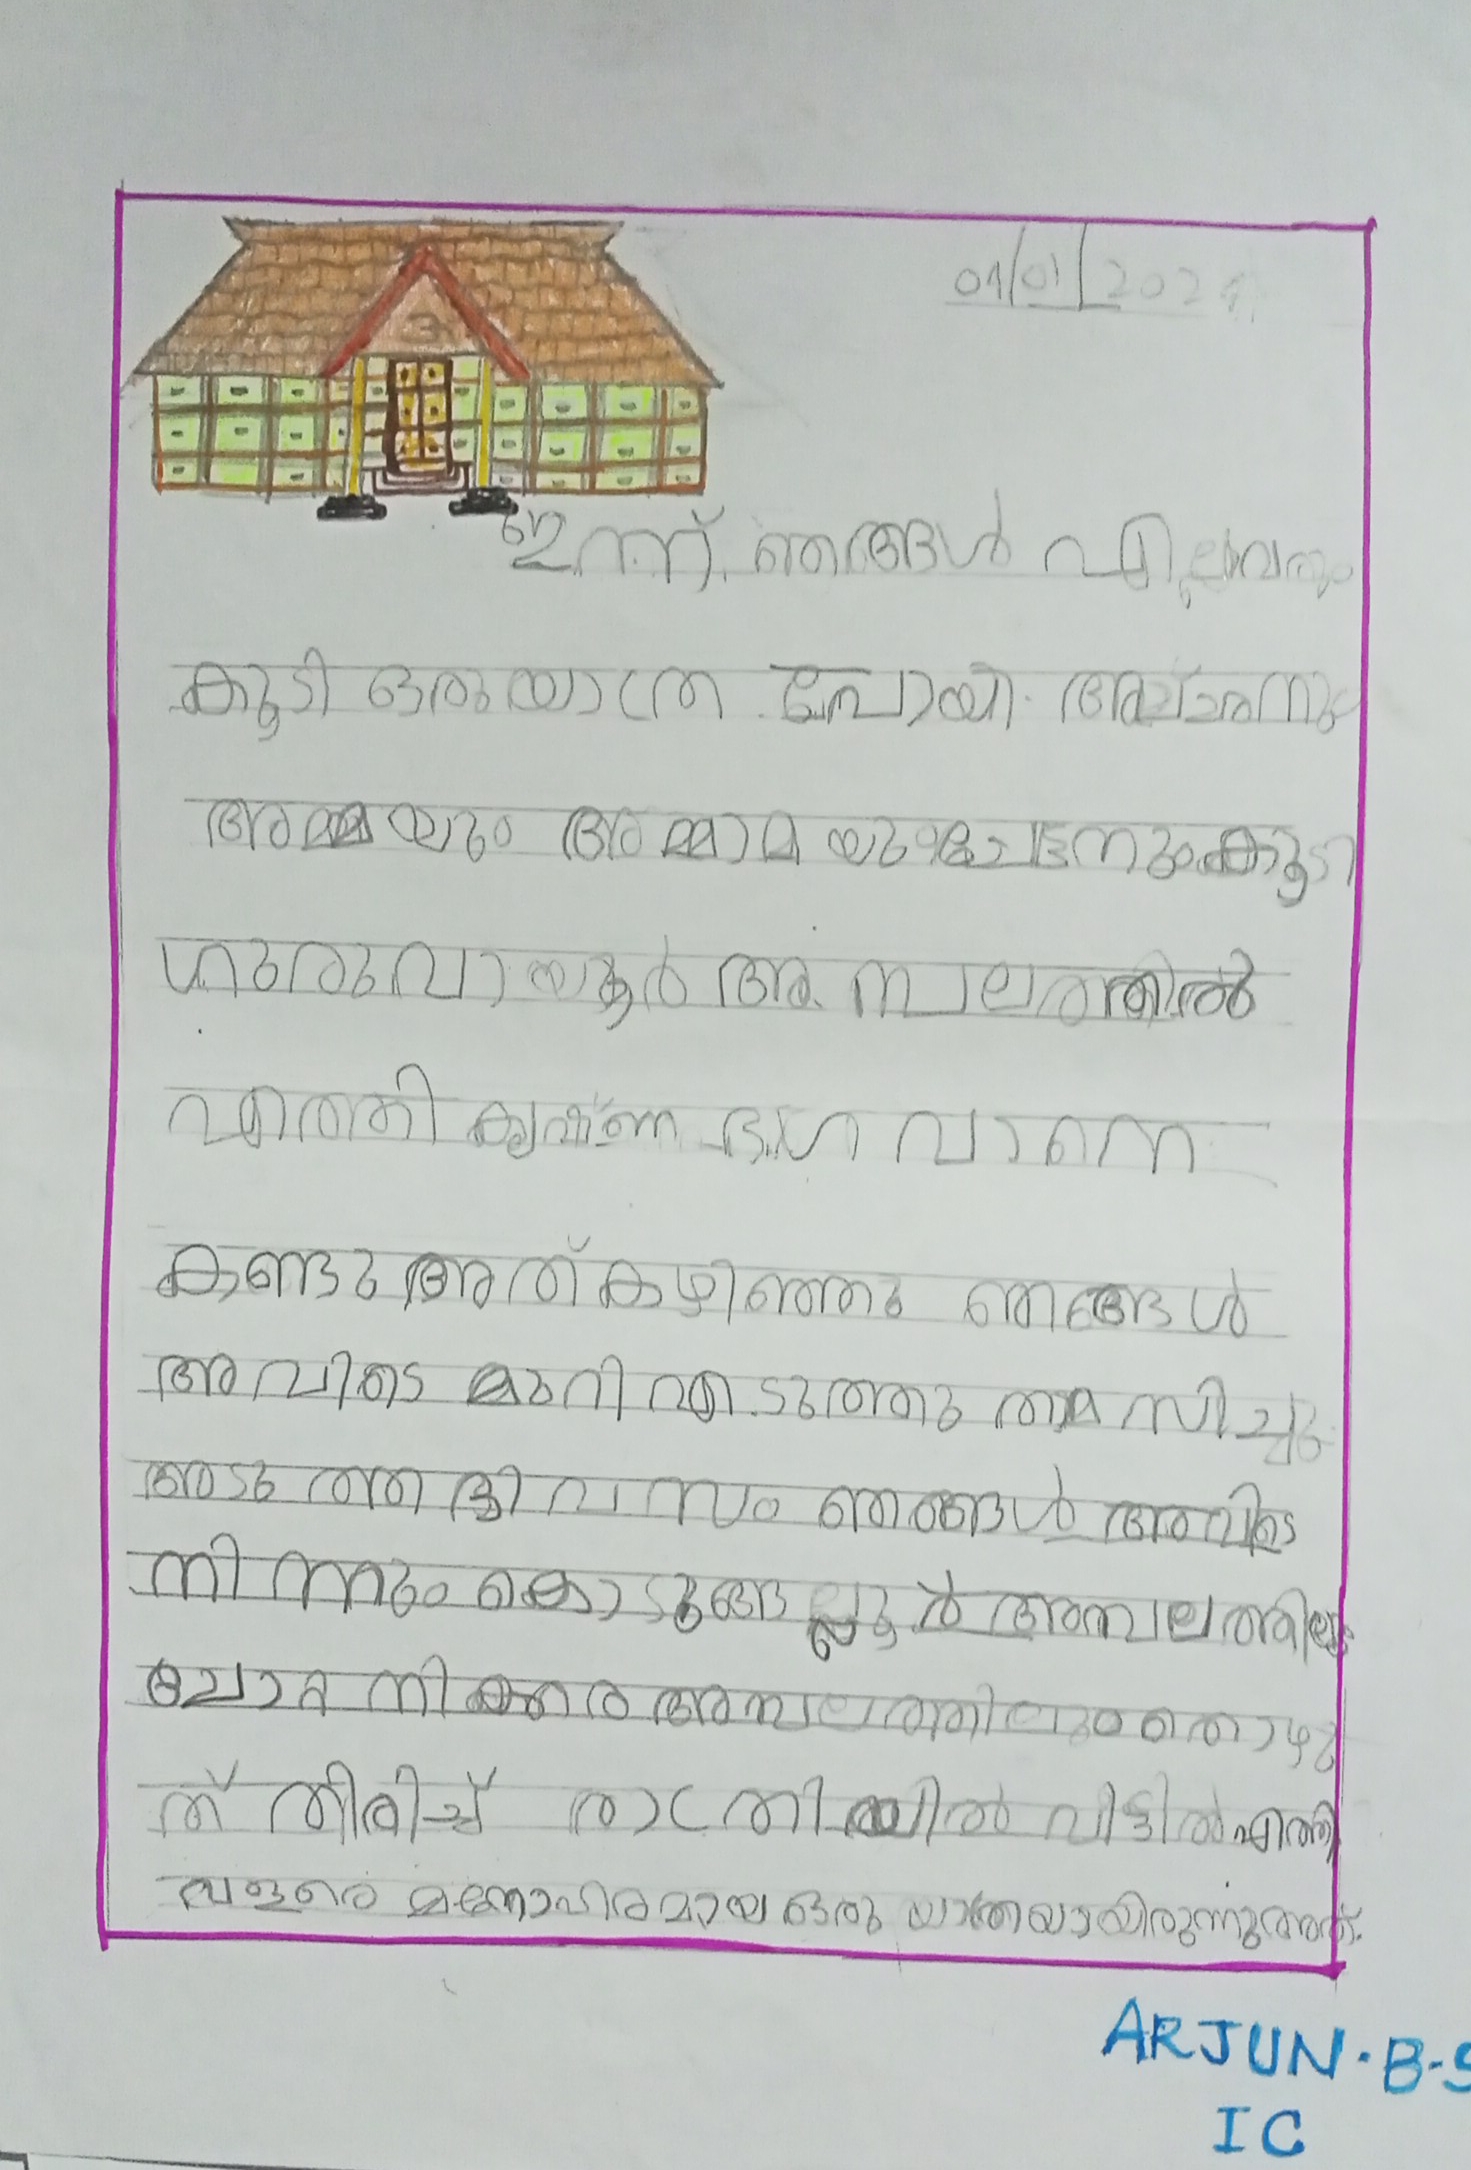 04/01/2024
ഇന്ന് ഞങ്ങൾ എല്ലാവരും
കൂടി ഒരു യാത്ര പോയി. അച്ഛനും
അമ്മയും അമ്മാമയും ചേട്ടനും കൂടി
ഗുരുവായൂർ അമ്പലത്തിൽ
എത്തി കൃഷ്ണ ഭഗവാനെ
കണ്ടു അത് കഴിഞ്ഞു ഞങ്ങൾ
അവിടെ മുറി എടുത്തു താമസിച്ചു
അടുത്ത ദിവസം ഞങ്ങൾ അവിടെ
നിന്നും കൊടുങ്ങല്ലൂർ അമ്പലത്തിലും
ചോറ്റനിക്കര അമ്പലത്തിലും തൊഴു
ത് തിരിച്ച് രാത്രിയിൽ വീട്ടിൽ എത്തി
വളരെ മനോഹരമായ ഒരു യാത്രയായിരുന്നു അത്.
ARJUN.B.S
IC